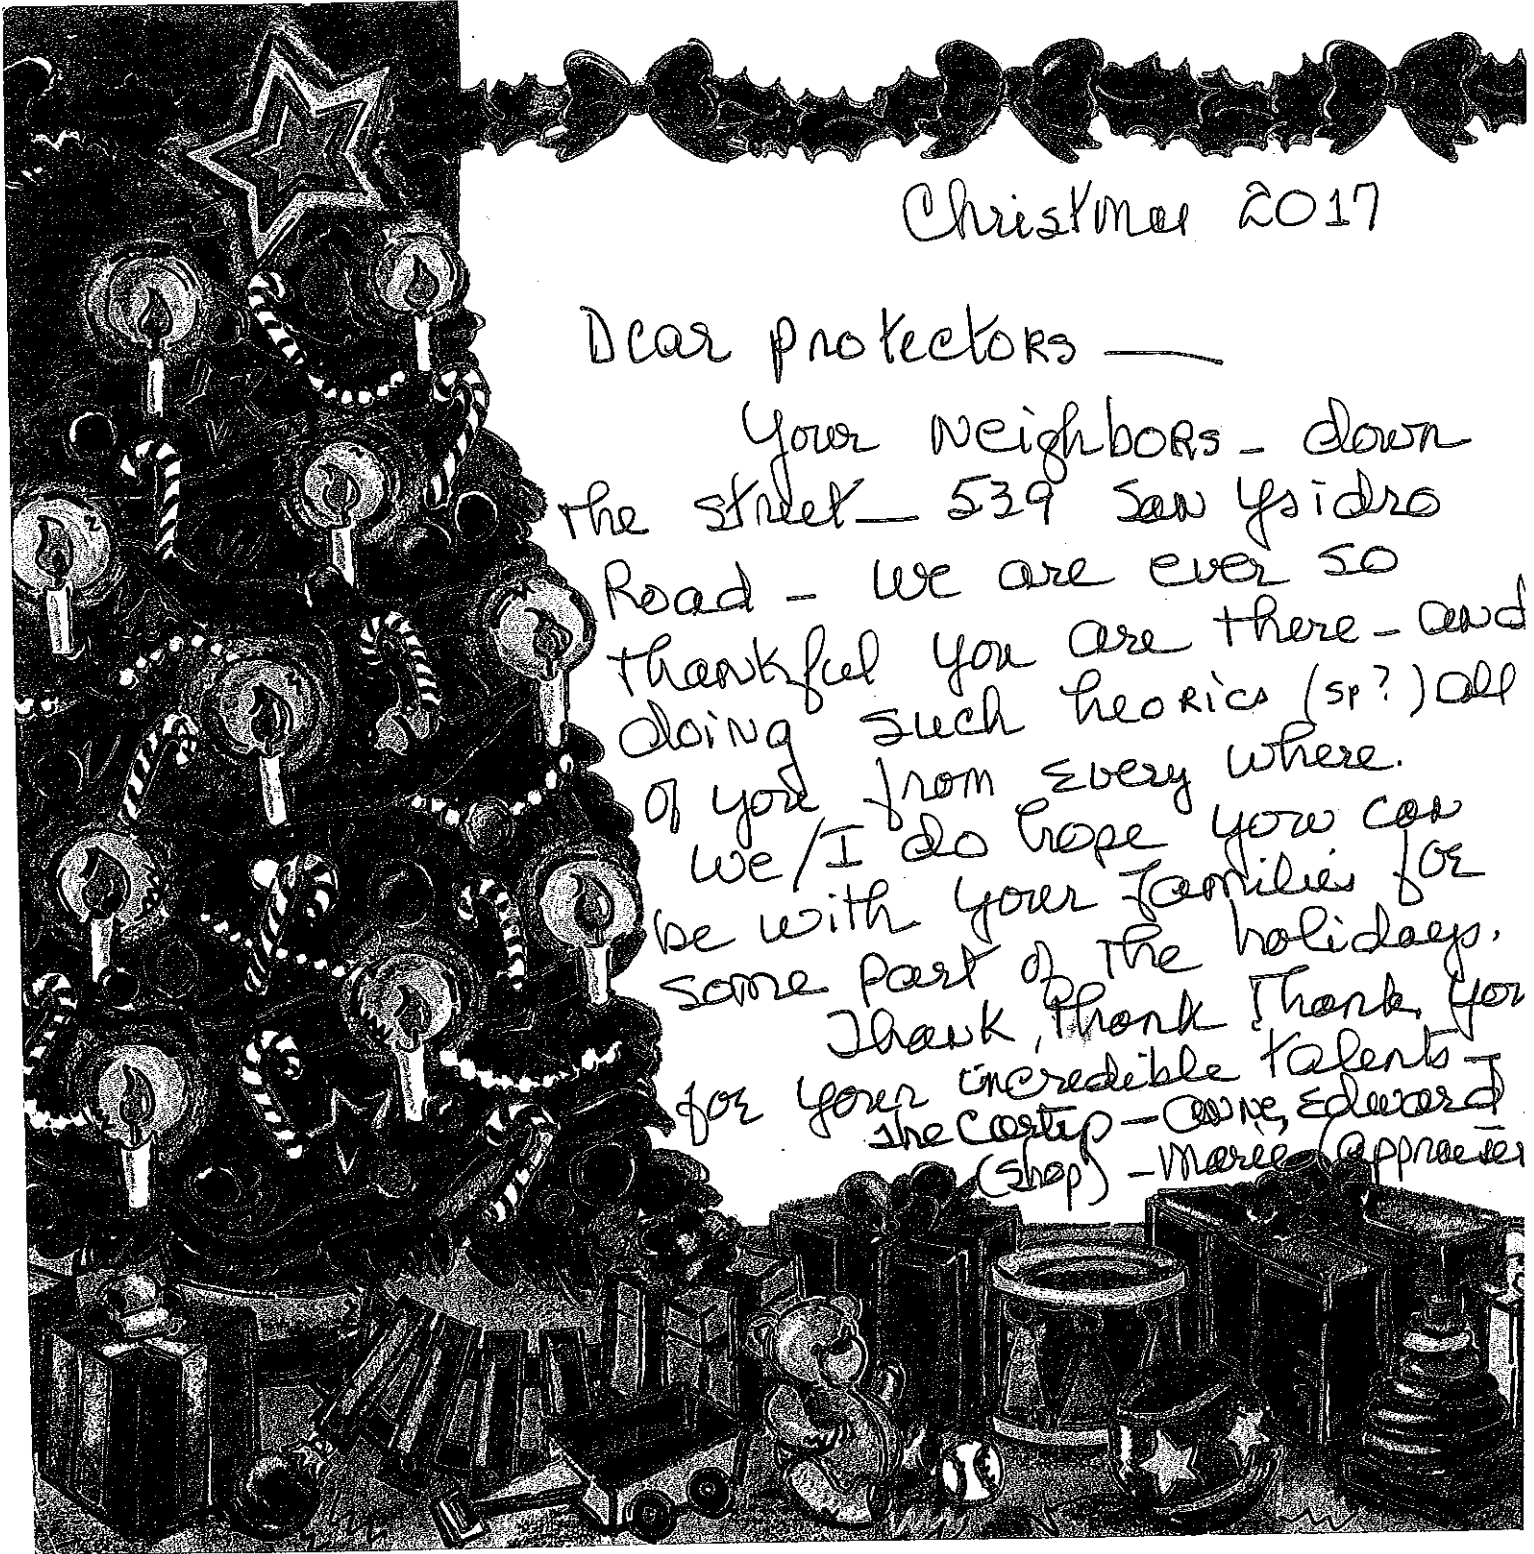 Christmas 2017
Dear protectors —
Your Neighbors - down
the street — 539 San Ysidro
Road - we are ever so
thankful you are there - and
doing such heorics (sp?) all
of you from every where.
We/I do hope you can
be with your families for
some part of the holidays.
Thank, Thank, Thank you
for your incredible talents -
The - Anne, Edward
(shop) - Marie (appraiser